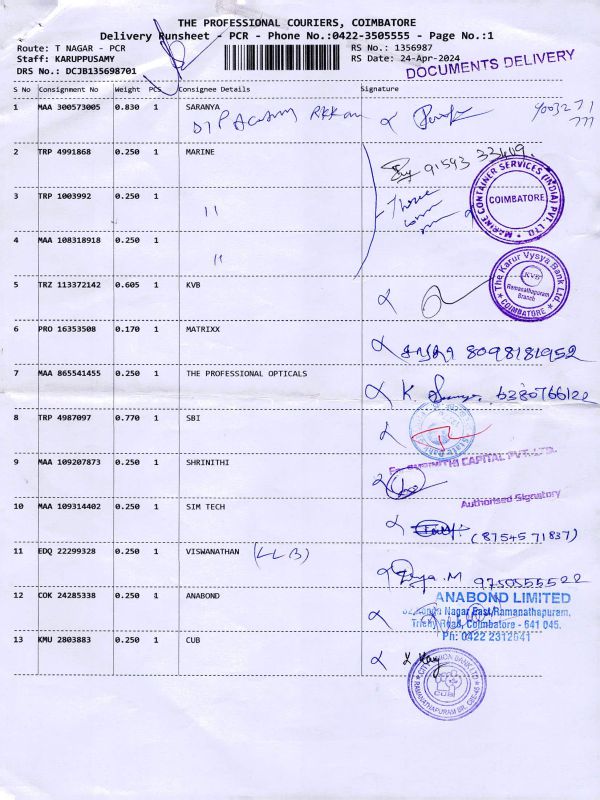 THE PROFESSIONAL COURIERS, COIMBATORE
Delivery Runsheet - PCR - Phone No.:0422-3505555 - Page No.:1
Route: T NAGAR - PCR
RS No.: 1356987
Staff: KARUPPUSAMY
RS Date: 24-Apr-2024
DRS No.: DCJB135698701
DOCUMENTS DELIVERY
S No Consignment No Weight PCS Consignee Details Signature
1 MAA 300573005 0.830 1 SARANYA
2 TRP 4991868 0.250 1 MARINE
91593 33419
MARINE CONTAINER SERVICES (INDIA) PVT. LTD.
COIMBATORE
3 TRP 1003992 0.250 1 "
Three
4 MAA 108318918 0.250 1 "
5 TRZ 113372142 0.605 1 KVB
The Karur Vysya Bank Ltd.
KVB
Ramanathapuram
Branch
COIMBATORE
6 PRO 16353508 0.170 1 MATRIXX
8098181952
7 MAA 865541455 0.250 1 THE PROFESSIONAL OPTICALS
K. 6380766122
8 TRP 4987097 0.770 1 SBI
9 MAA 109207873 0.250 1 SHRINITHI
For SHRINITHI CAPITAL PVT. LTD.
Authorised Signatory
10 MAA 109314402 0.250 1 SIM TECH
(87545 71837)
11 EDQ 22299328 0.250 1 VISWANATHAN (LLB)
M 9750555522
12 COK 24285338 0.250 1 ANABOND
ANABOND LIMITED
Nagar East, Ramanathapuram,
Trichy Road, Coimbatore - 641 045.
Ph: 0422 2312641
13 KMU 2803883 0.250 1 CUB
CITY UNION BANK LTD
CUB
RAMANATHAPURAM BR. CBE-45